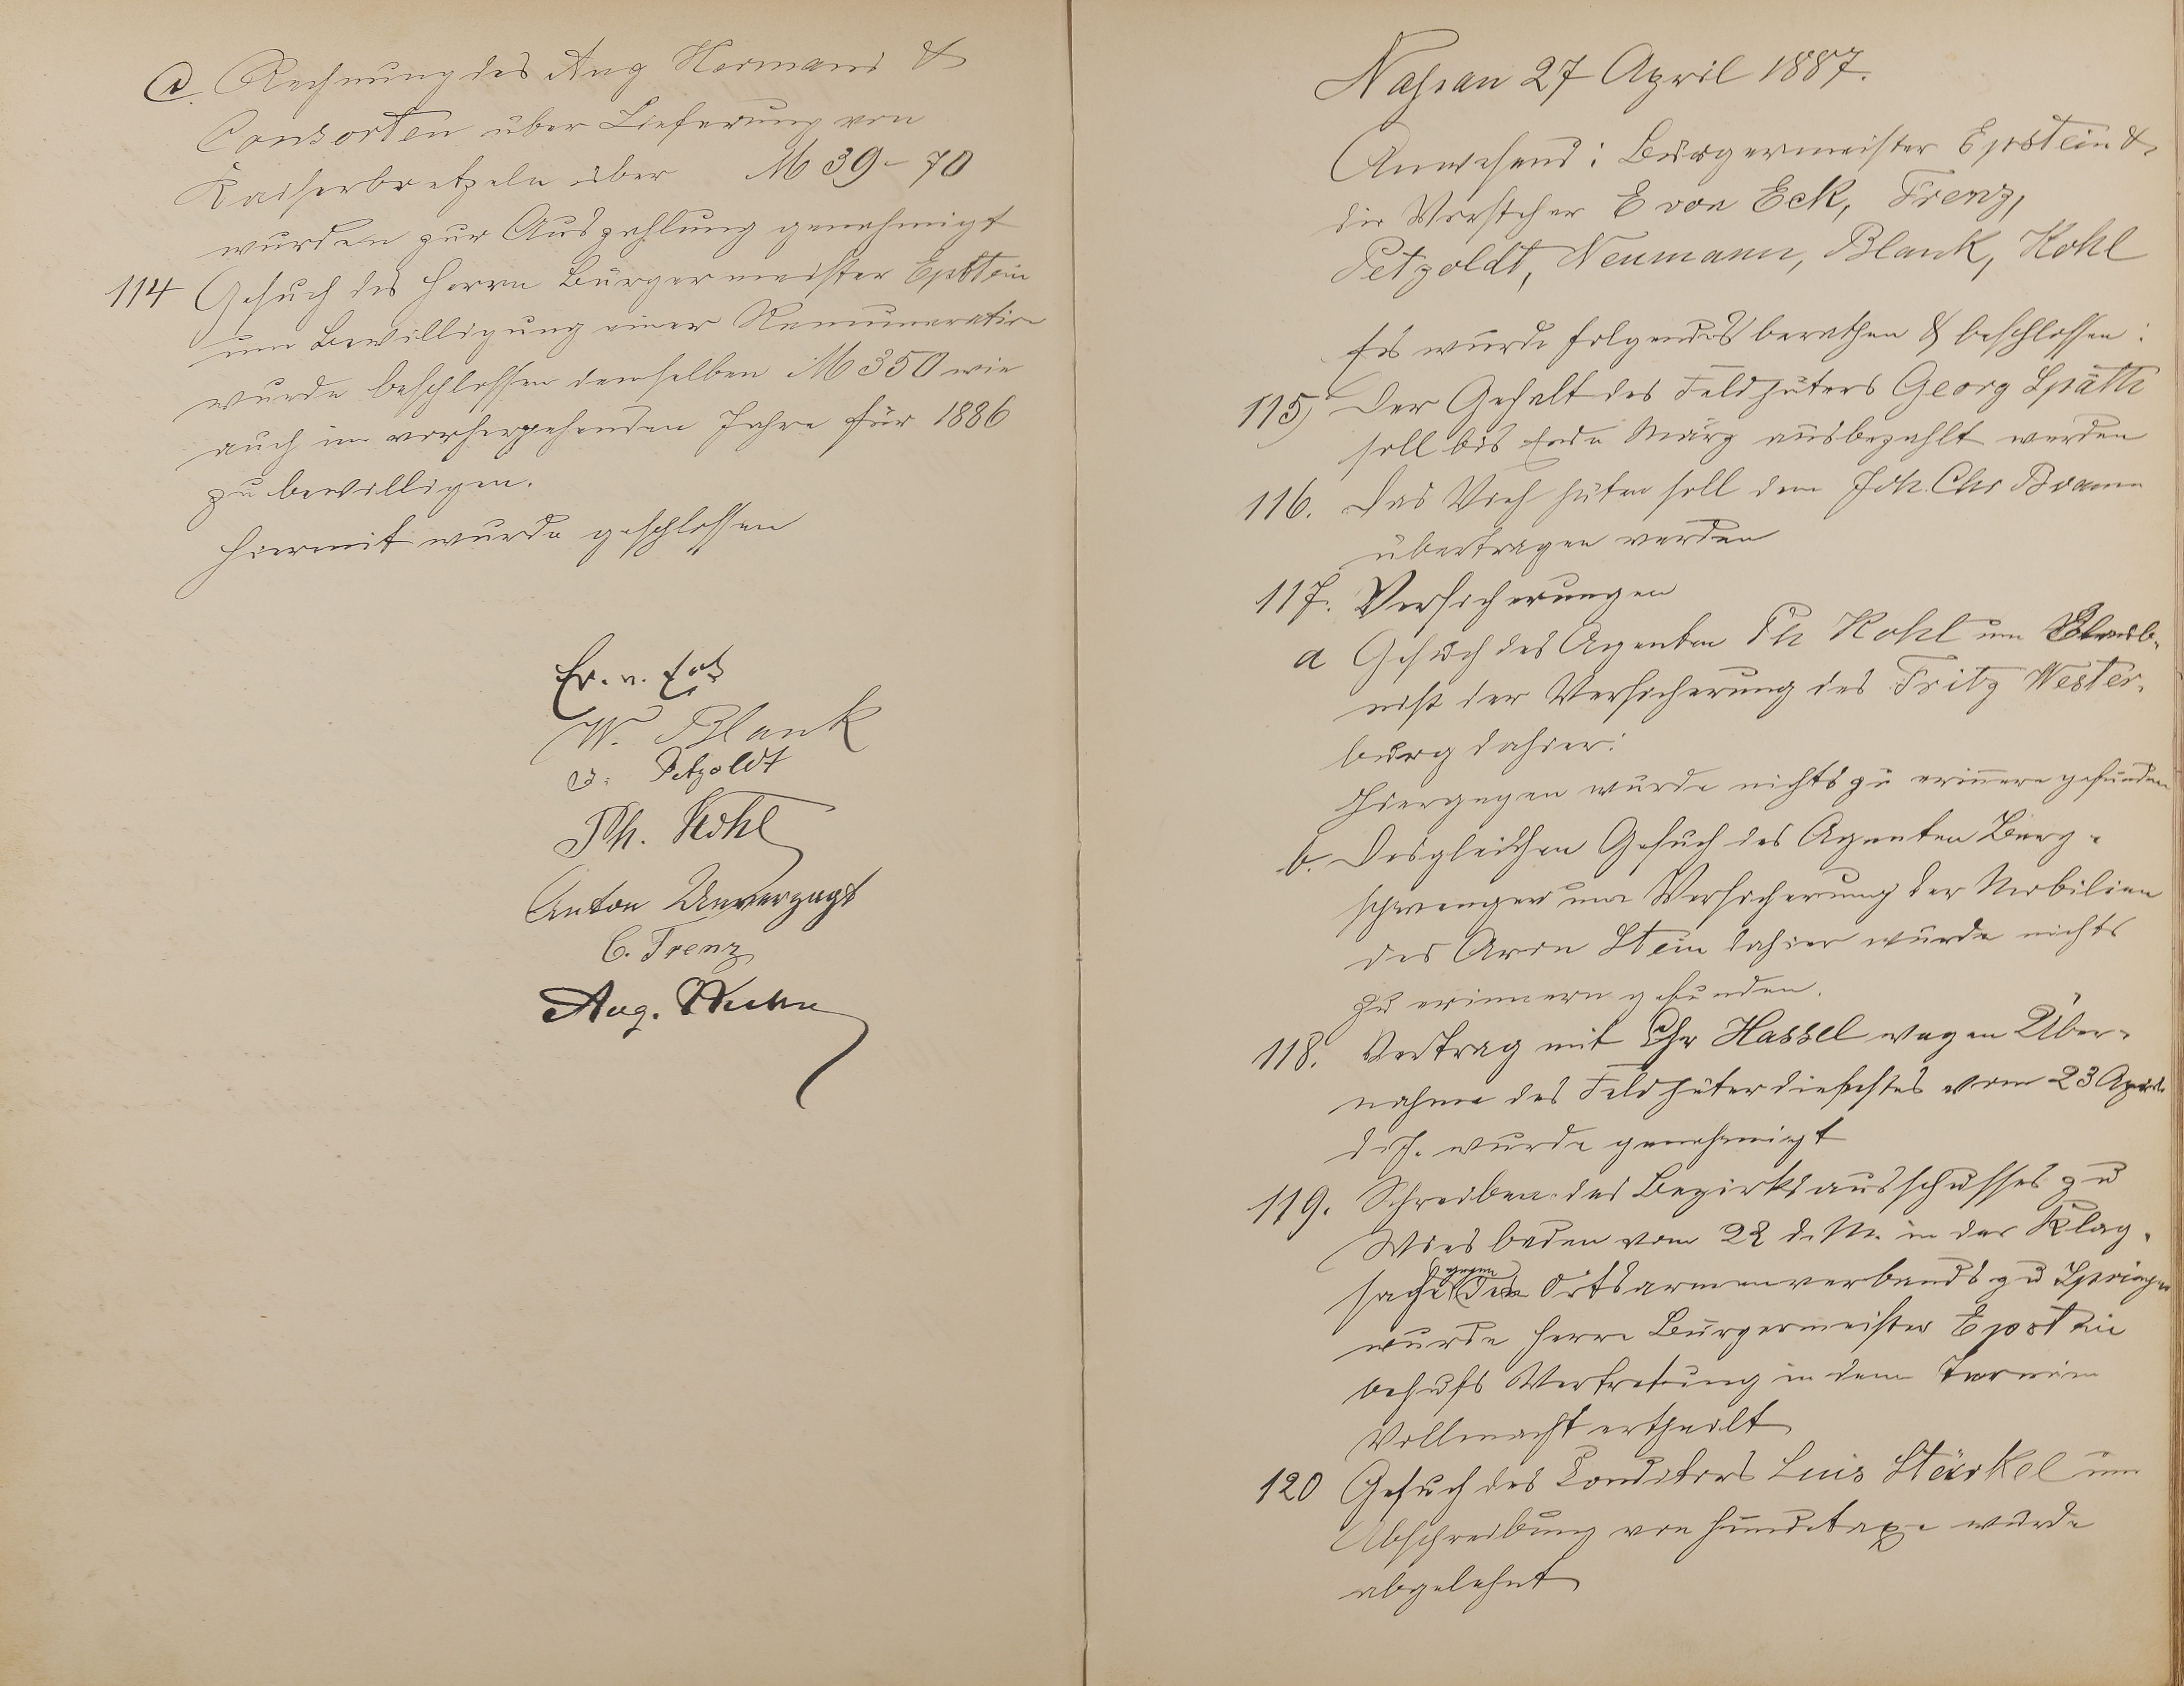 d. Rechnung des Aug Hermani &
Consorten über Lieferung von
Kaiserbretzeln über M 39-70
wurden zur Auszahlung genehmigt
114 Gesuch des Herrn Bürgermeister Epstein
um Bewilligung einer Remuneration
wurde beschlossen demselben M 350 wie
auch im vorhergehenden Jahre für 1886
zu bewilligen.
Hiermit wurde geschlossen
Er. v. Eck
W. Blank
Petzoldt
Ph. Kohl
Anton Unverzagt
C. Frenz
Aug.
Nassau 27 April 1887.
Anwesend: Bürgermeister Epstein &
die Vorsteher E von Eck, Frenz,
Petzoldt, Neumann, Blank, Kohl
Es wurde folgendes berathen & beschlossen:
115) Der Gehalt des Feldhüters Georg Späth
soll bis Ende März ausbezahlt werden
116. Das Vieh hüten soll dem Joh. Chr Bramm
übertragen werden
117. Versicherungen
a Gesuch des Agenten Ph Kohl um Erlaub-
niß der Versicherung des Fritz Wester-
burg dahier:
Hiergegen wurde nichts zu erinnern gefunden
b. Desgleichen Gesuch des Agenten Berg-
schwenger um Versicherung der Mobilien
des Aron Stein dahier wurde nichts
zu erinnern gefunden.
118. Vertrag mit Chr Hassel wegen Über-
nahme des Feldhüterdienstes vom 23 April
d. J. wurde genehmigt
119. Schreiben des Bezirksausschusses zu
Wiesbaden vom 22 d. M. in der Klag-
sache gegen den Ortsarmenverbands zu Springen
wurde Herrn Bürgermeister Epstein
behufs Vertretung in dem Termin
Vollmacht ertheilt
120 Gesuch des Conditors Luis Stärkel um
Abschreibung von Hundetaxe wurde
abgelehnt